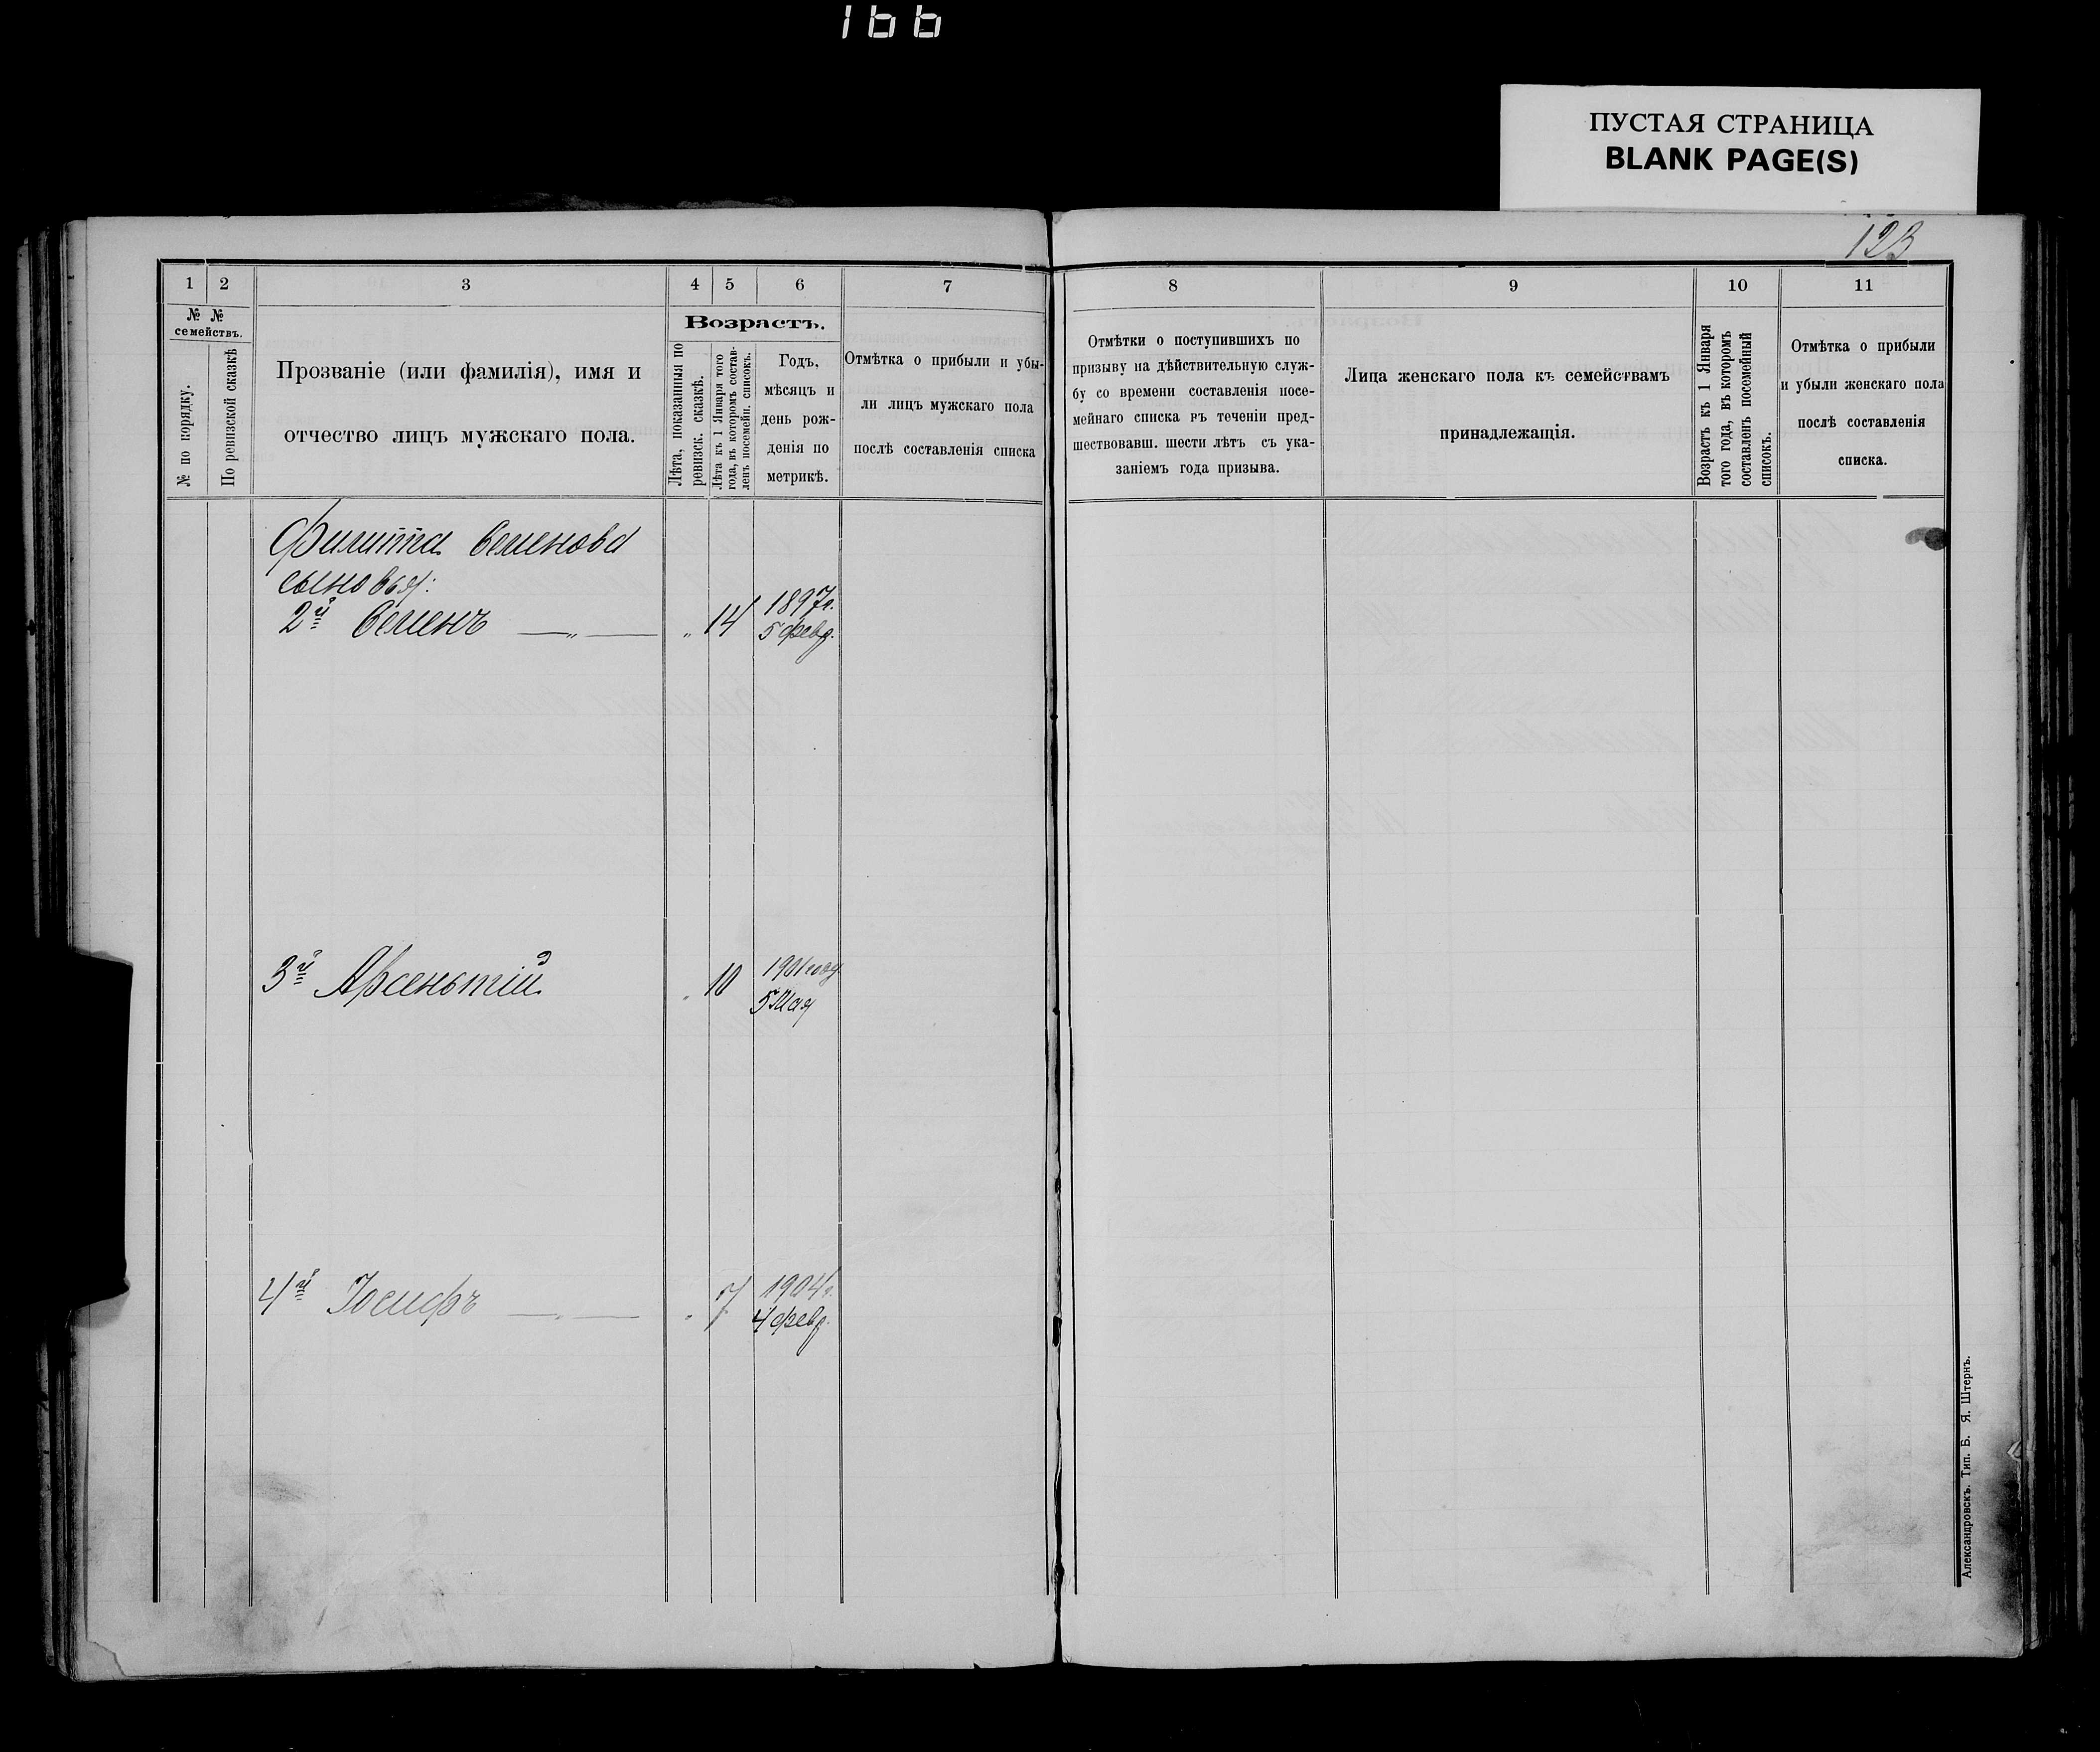 166
ПУСТАЯ СТРАНИЦА
BLANK PAGE(S)
123
1
2
3
4
5
6
7
№ №
семействъ.
№ по порядку.
По ревизской сказкѣ
Прозваніе (или фамилія), имя и
отчество лицъ мужскаго пола.
Возрастъ.
Лѣта, показанныя по
ревизск. сказкѣ.
Лѣта къ 1 Января того
года, въ которомъ состав-
ленъ посемейн. списокъ.
Годъ,
мѣсяцъ и
день рож-
денія по
метрикѣ.
Отмѣтка о прибыли и убы-
ли лицъ мужскаго пола
послѣ составленія списка
Филиппа Семенова
сыновья:
2й Семенъ — „ — „ 14 1897г.
5 февр.
3й Арсентій „ 10 1901 год
5 Мая
4й Іосифъ — „ — „ 7 1904г.
4 февр.
8
9
10
11
Отмѣтки о поступившихъ по
призыву на дѣйствительную служ-
бу со времени составленія посе-
мейнаго списка въ теченіи пред-
шествовавш. шести лѣтъ съ ука-
заніемъ года призыва.
Лица женскаго пола къ семействамъ
принадлежащія.
Возрастъ къ 1 Января
того года, въ которомъ
составленъ посемейный
списокъ.
Отмѣтка о прибыли
и убыли женскаго пола
послѣ составленія
списка.
Александровскъ. Тип. Б. Я. Штернъ.